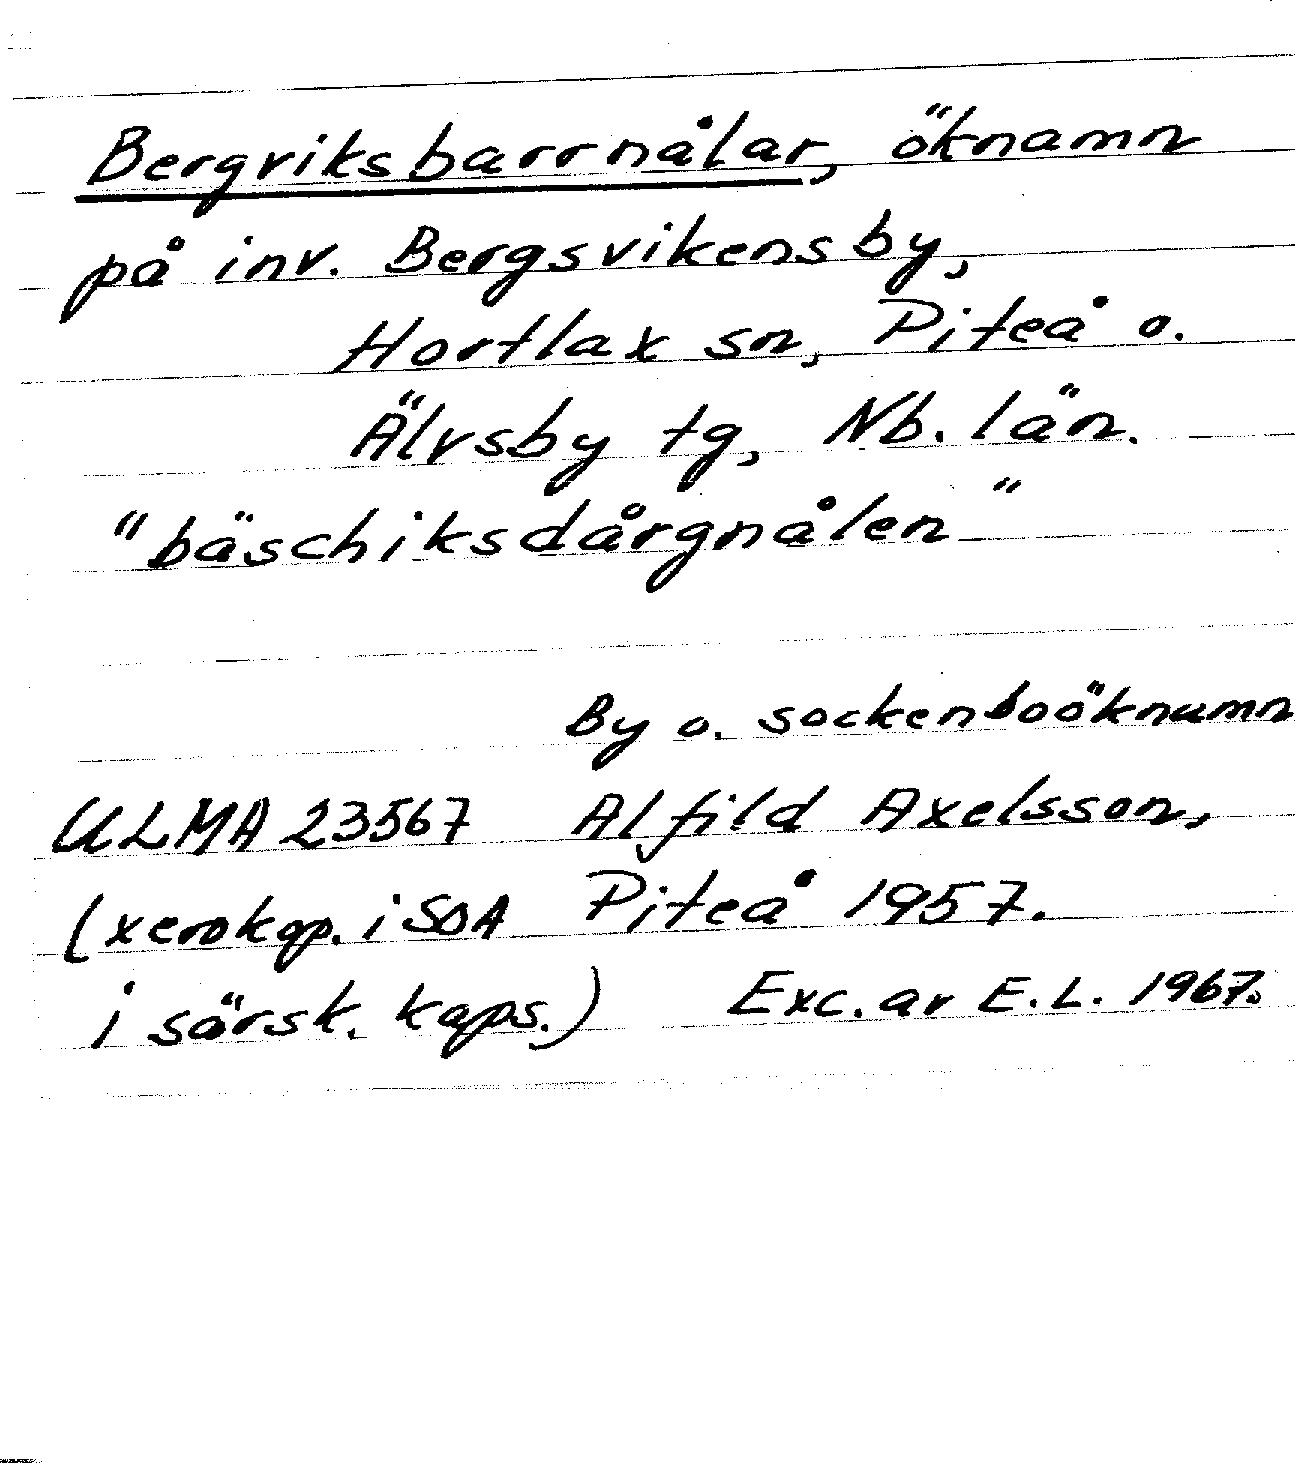 Bergviksbarrnålar, öknamn
på inv. Bergsvikens by,
Hortlax sn, Piteå o.
Älvsby tg, Nb. län.
"bäschiksdårgnålen"
By o. sockenboöknamn
ULMA 23567 Alfild Axelsson,
(xerokop. i SOA Piteå 1957.
i särsk. kaps.) Exc. av E.L. 1967.